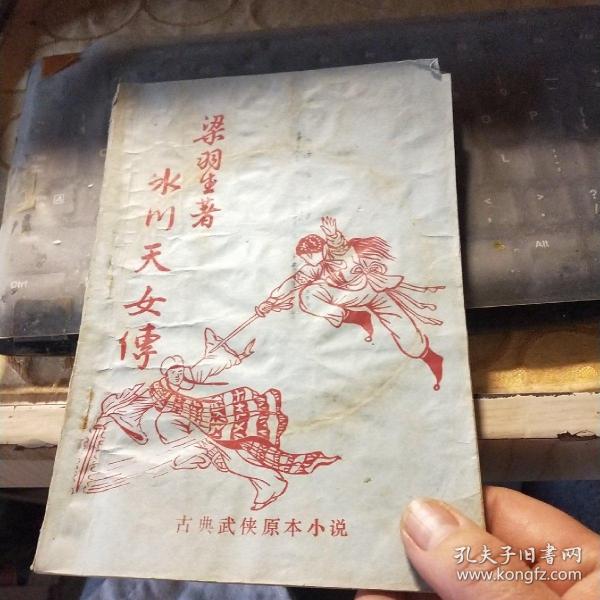 梁羽生著
冰川天女傳
古典武侠原本小说
孔夫子旧书网
www.kongfz.com
Alt
Ctrl